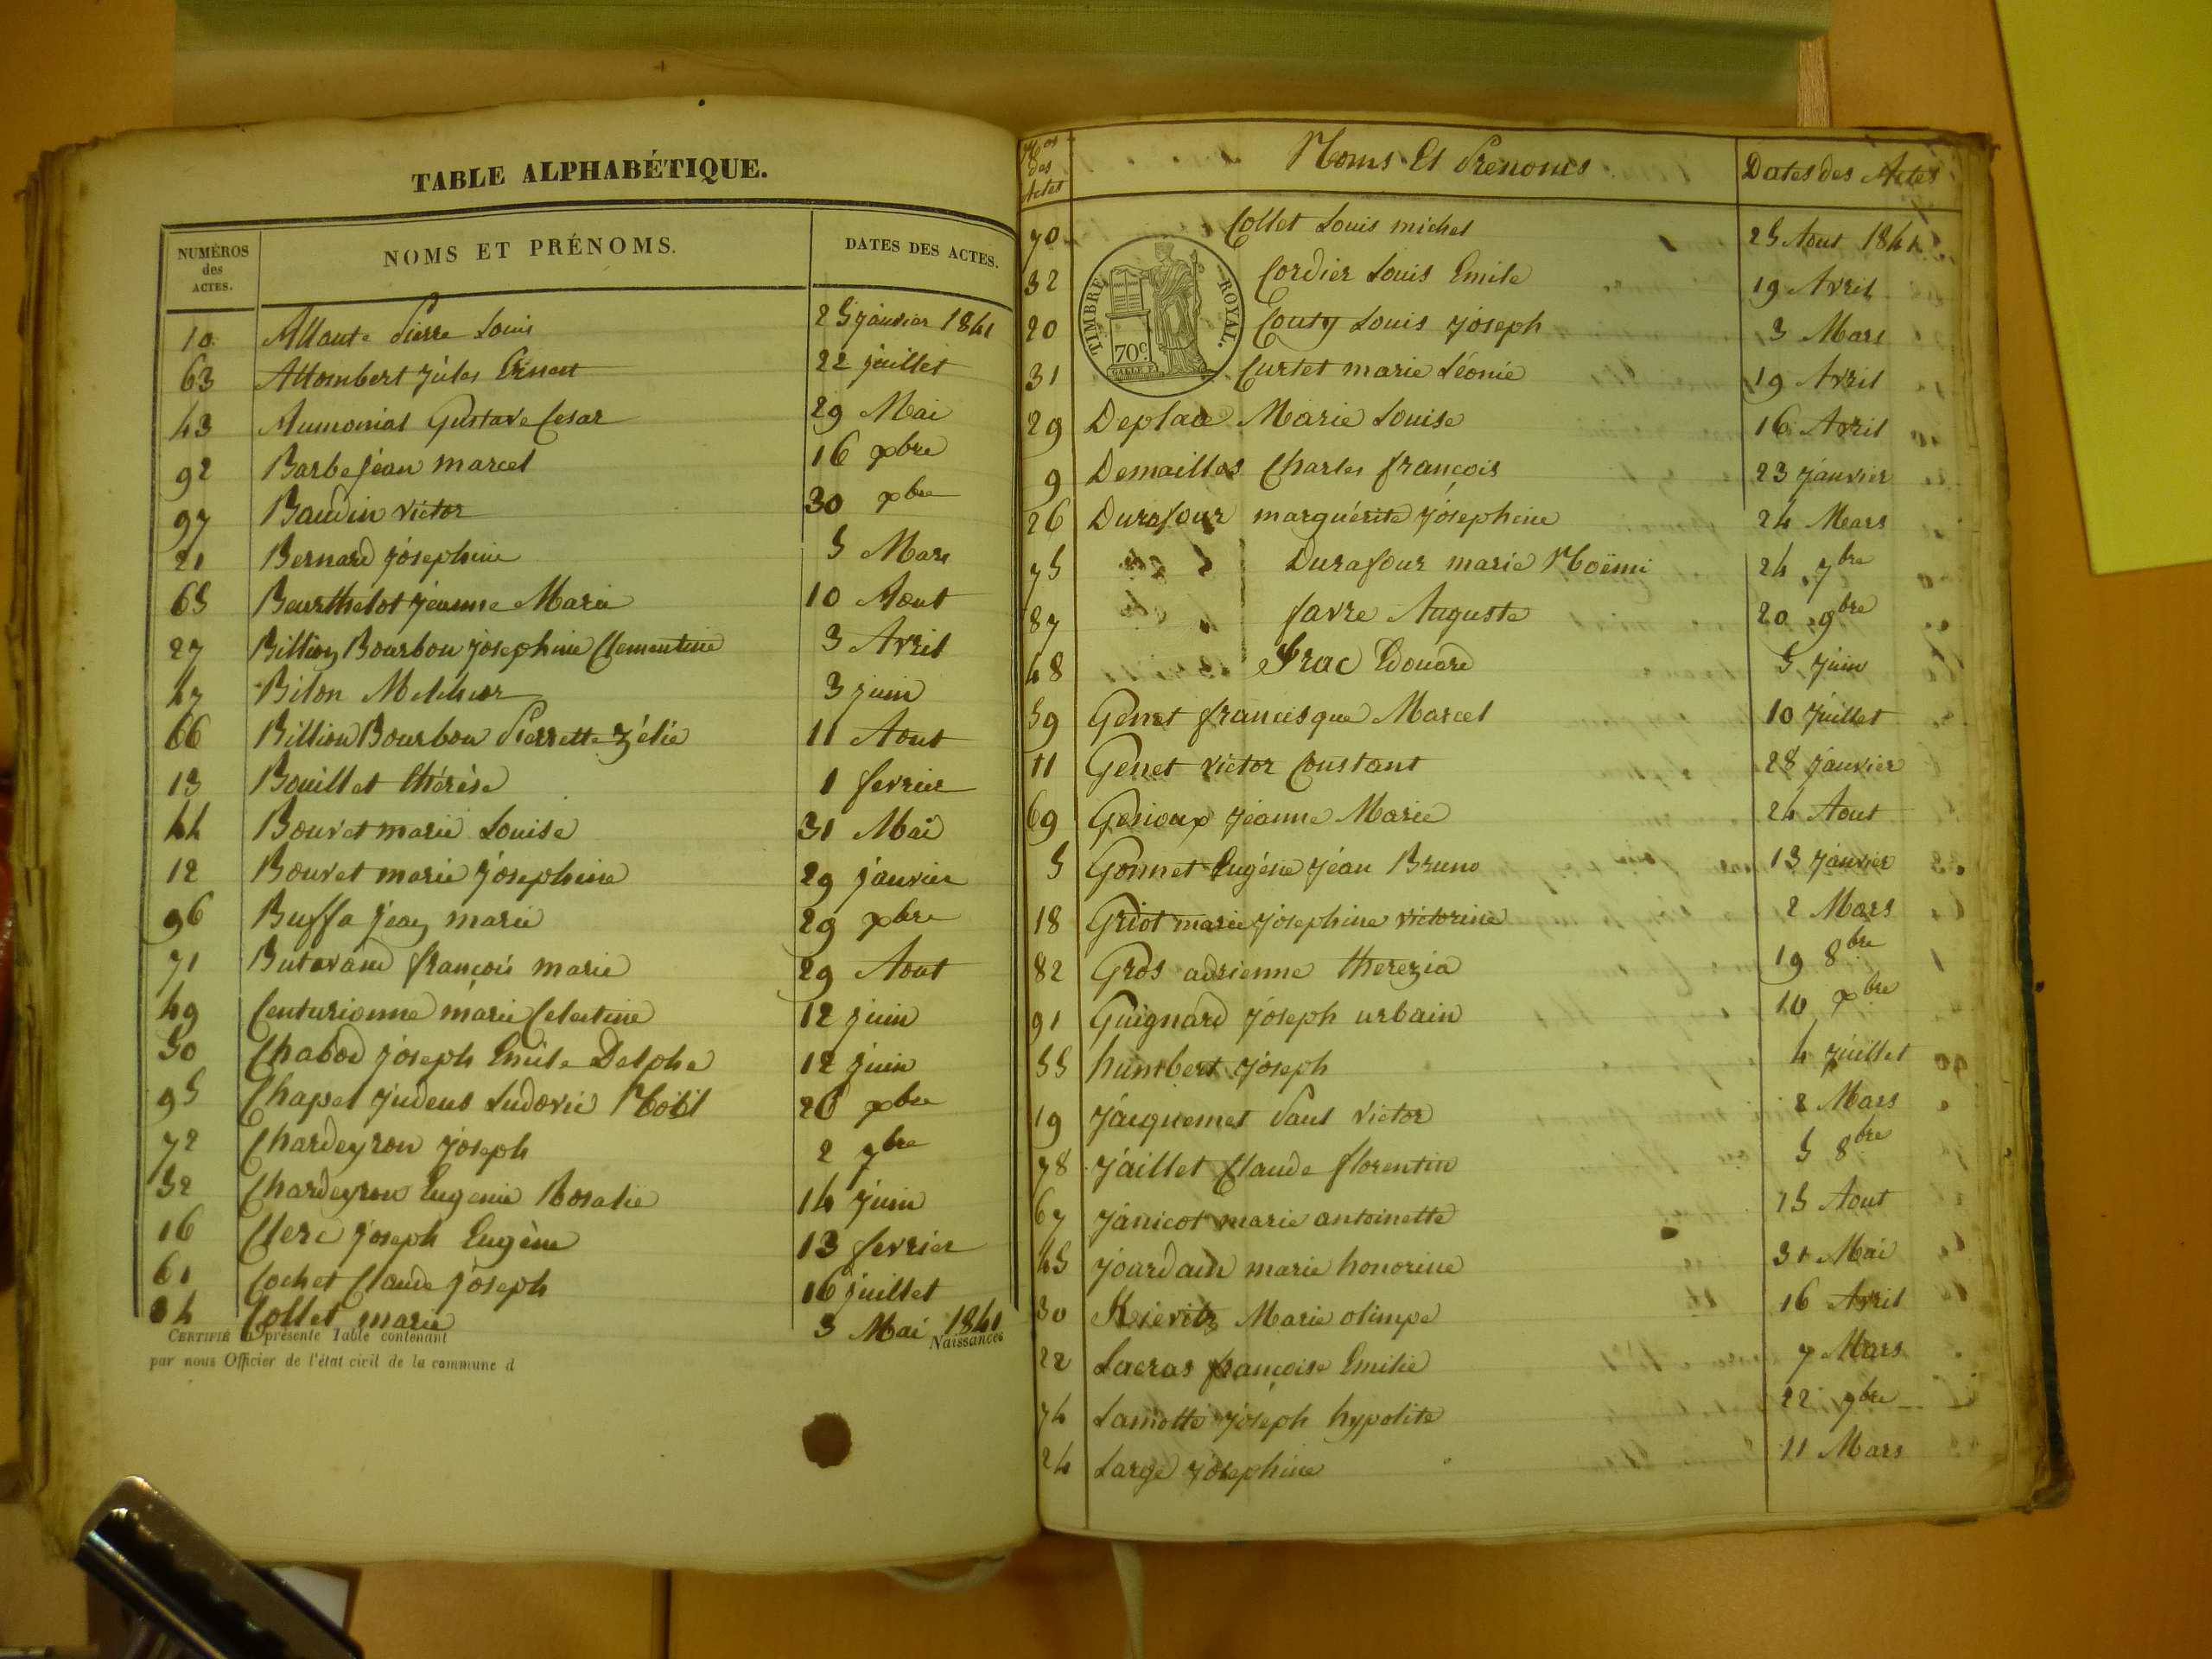 TABLE ALPHABÉTIQUE.
NUMÉROS des ACTES. NOMS ET PRÉNOMS. DATES DES ACTES.
10 Allante Pierre Louis 25 janvier 1841
63 Allombert jules Ernest 22 juillet
43 Aumonial Gustave Cesar 29 Mai
92 Barbe jean marcel 16 xbre
97 Baudin victor 30 xbre
21 Bernard josephine 5 Mars
65 Beurthelot jeanne Marie 10 Aout
27 Billion Bourbon josephine Clementine 3 Avril
47 Bilon Melchior 3 juin
66 Billion Bourbon Pierrette Zélie 11 Aout
13 Bouillet thérèse 1 fevrier
44 Bouvet marie Louise 31 Mai
12 Bouvet marie josephine 29 janvier
96 Buffa jean marie 29 xbre
71 Butavand françois marie 29 Aout
49 Centurionne marie Celestine 12 juin
50 Chabod joseph Emile Delphe 12 juin
95 Chapel judeus Ludovic 26 xbre
72 Chardeyron joseph 2 7bre
52 Chardeyron Eugenie Rosalie 14 juin
16 Clerc joseph Eugène 13 fevrier
61 Cochet Claude joseph 16 juillet
34 Collet marie 3 Mai 1841
CERTIFIÉ la présente Table contenant Naissances
par nous Officier de l'état civil de la commune d
Nos des Actes Noms Et Prenoms Dates des Actes
70 Collet Louis michel 25 Aout 1841
32 Cordier Louis Emile 19 Avril
20 Couty Louis joseph 3 Mars
TIMBRE ROYAL.
70c.
31 Curtet marie Léonie 19 Avril
29 Deplace Marie Louise 16 Avril
9 Demailles Charles françois 23 janvier
26 Durafour marguérite josephine 24 Mars
75 Durafour marie Noëmi 24 7bre
87 favre Auguste 20 9bre
48 Frac Edouard 5 juin
59 Genet francisque Marcel 10 juillet
11 Genet victor Constant 28 janvier
69 Genoux jeanne Marie 24 Aout
5 Gonnet Eugénie jéan Bruno 13 janvier
18 Griot marie josephine victorine 2 Mars
82 Gros adrienne therezia 19 8bre
91 Guignard joseph urbain 10 xbre
55 humbert joseph 4 juillet
19 jacquemet Paul victor 2 Mars
78 jaillet Claude florentin 5 8bre
67 janicot marie antoinette 15 Aout
45 jourdain marie honorine 31 Mai
30 Kievitz Marie olimpe 16 Avril
22 Lacras françoise Emilie 7 Mars
74 Lamotte joseph hypolite 22 7bre
24 Large josephine 11 Mars